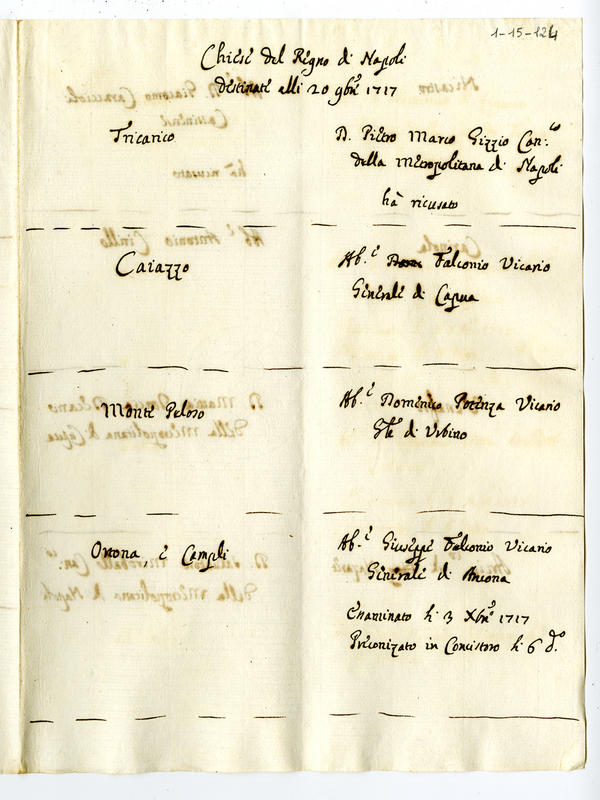 1-15-124
Chiese del Regno di Napoli
destinate alli 20 9bre 1717
Tricarico
D. Pietro Marco Gizzio Can.co
della Metropolitana di Napoli
hà ricusato
Caiazzo
Ab.e Falconio Vicario
Generale di Capua
Monte Peloso
Ab.e Domenico Potenza Vicario
Gle di Urbino
Ortona, e Campli
Ab.e Giuseppe Falconio Vicario
Generale di Ancona
Esaminato li 3 Xbre 1717
Preconizato in Concistoro li 6 do.